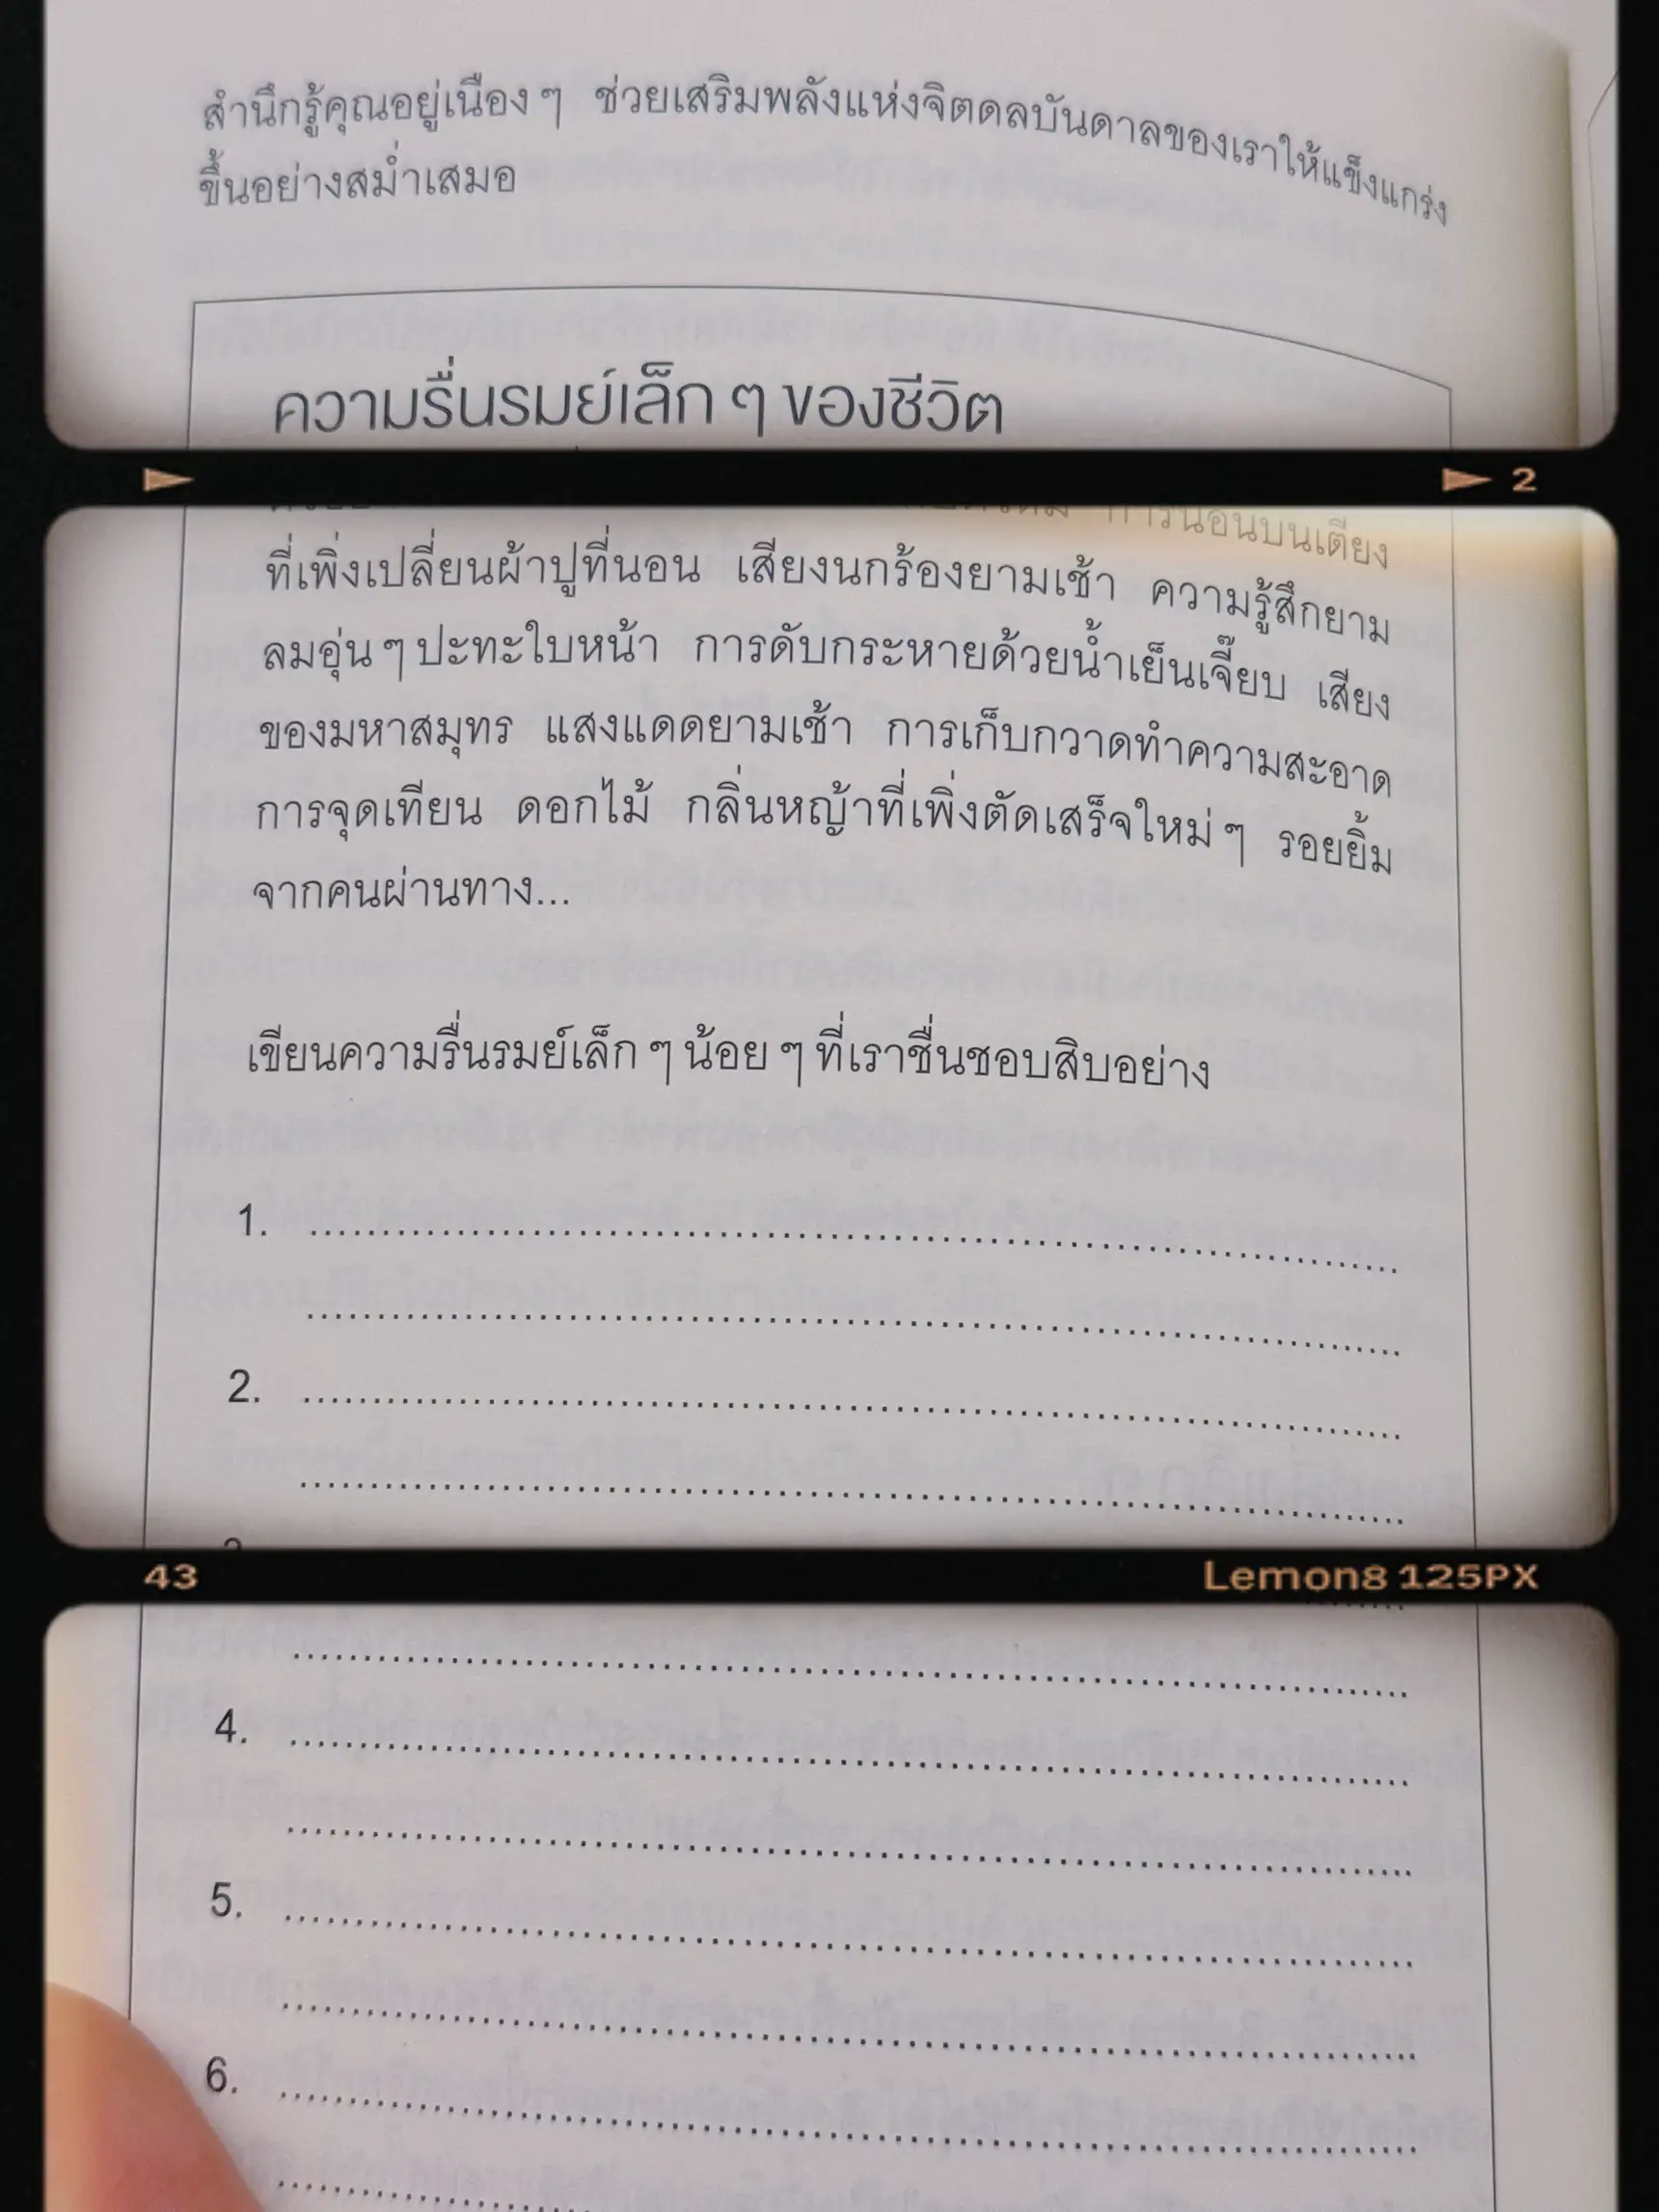 สำนึกรู้คุณอยู่เนือง ๆ ช่วยเสริมพลังแห่งจิตดลบันดาลของเราให้แข็งแกร่ง
ขึ้นอย่างสม่ำเสมอ
ความรื่นรมย์เล็ก ๆ ของชีวิต
2
การนอนบนเตียง
ที่เพิ่งเปลี่ยนผ้าปูที่นอน เสียงนกร้องยามเช้า ความรู้สึกยาม
ลมอุ่น ๆ ปะทะใบหน้า การดับกระหายด้วยน้ำเย็นเจี๊ยบ เสียง
ของมหาสมุทร แสงแดดยามเช้า การเก็บกวาดทำความสะอาด
การจุดเทียน ดอกไม้ กลิ่นหญ้าที่เพิ่งตัดเสร็จใหม่ ๆ รอยยิ้ม
จากคนผ่านทาง...
เขียนความรื่นรมย์เล็ก ๆ น้อย ๆ ที่เราชื่นชอบสิบอย่าง
1.
2.
43 Lemon8 125PX
4.
5.
6.